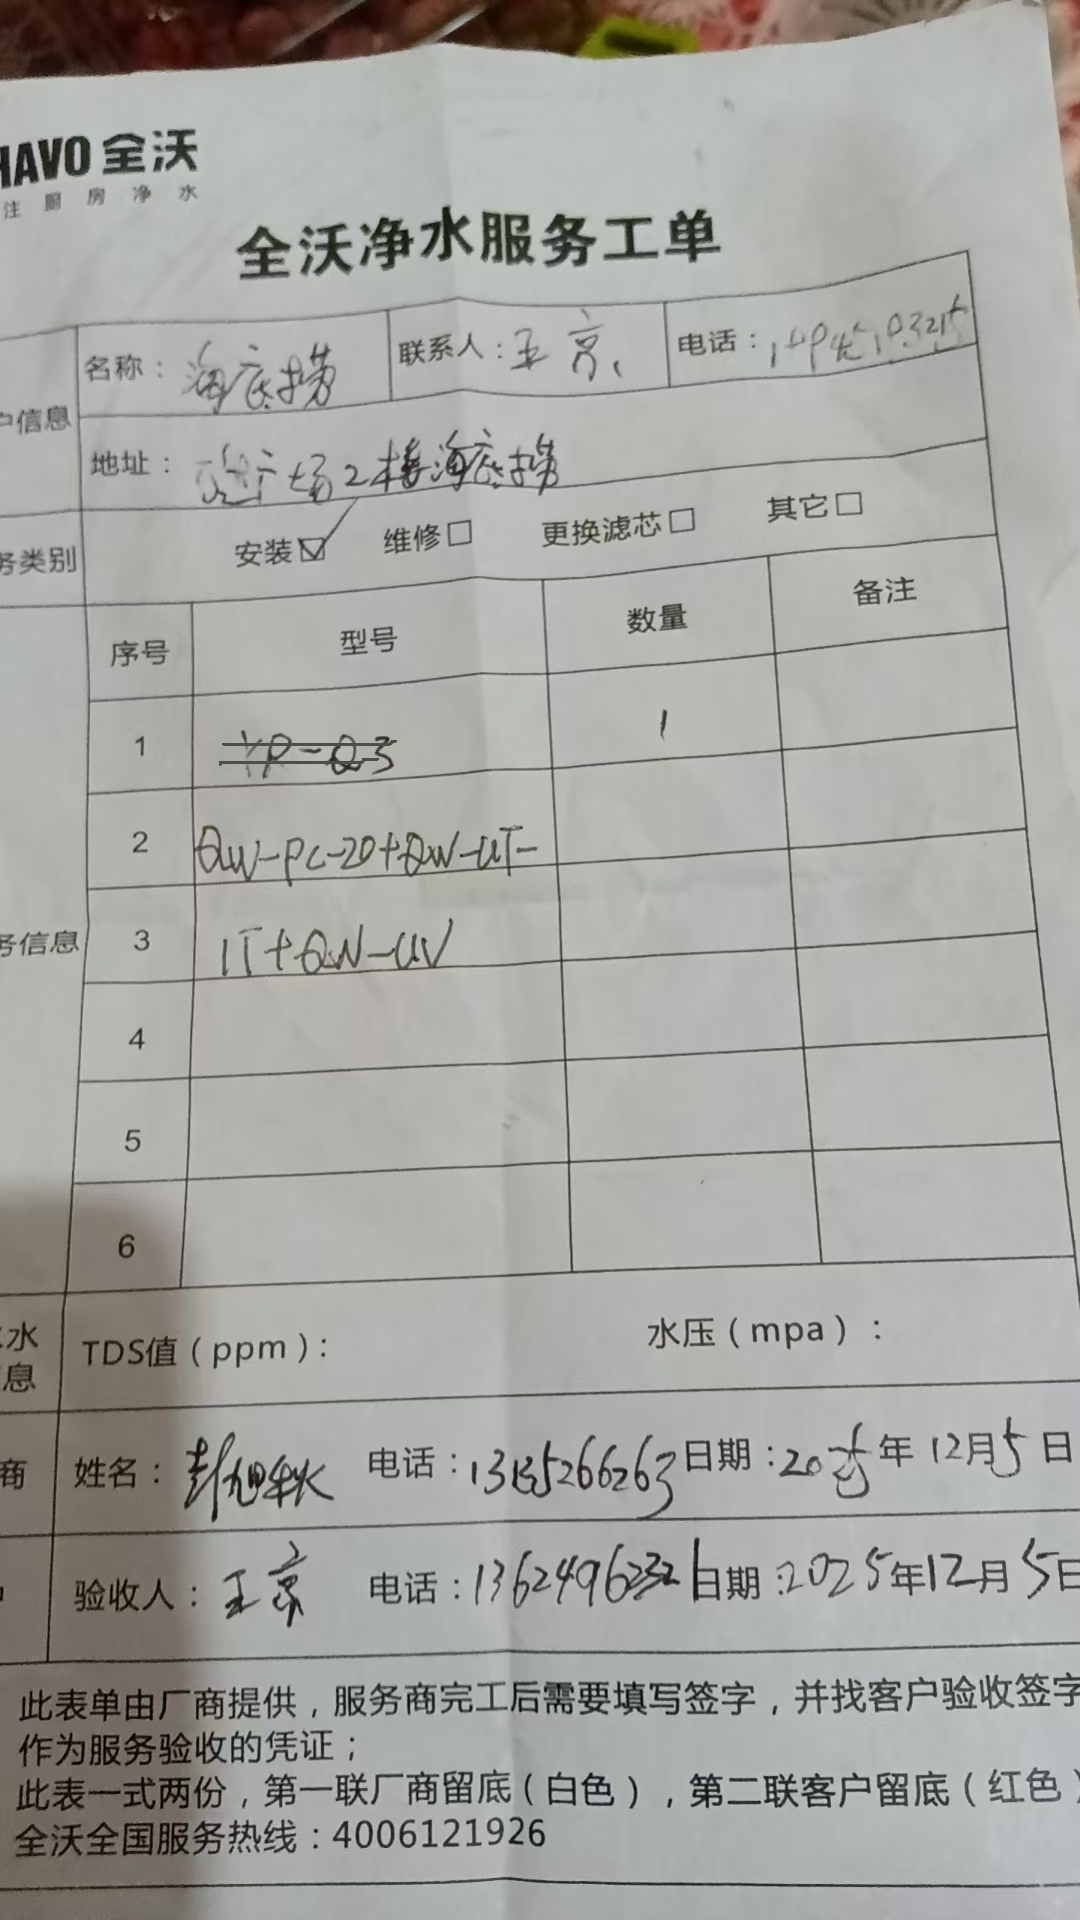 HAVO 全沃
注厨房净水
全沃净水服务工单
户信息
名称：海底捞 联系人：王京 电话：
地址：广场2楼海底捞
务类别 安装☑ 维修□ 更换滤芯□ 其它□
序号 型号 数量 备注
务信息
1 YP-Q3 1
2 QW-PC-20+QW-UT-
3 1T+QW-UV
4
5
6
水
息
TDS值（ppm）： 水压（mpa）：
商 姓名：彭旭秋 电话：13135266263 日期：2025年12月5日
验收人：王京 电话： 日期：2025年12月5日
此表单由厂商提供，服务商完工后需要填写签字，并找客户验收签字
作为服务验收的凭证；
此表一式两份，第一联厂商留底（白色），第二联客户留底（红色）
全沃全国服务热线：4006121926